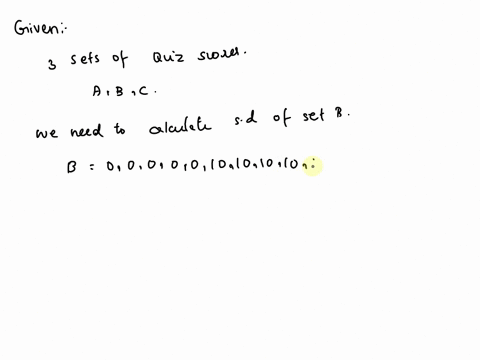 Given:-
3 sets of Quiz scores.
A, B, C.
we need to calculate s.d of set B.
B = 0, 0, 0, 0, 0, 10, 10, 10, 10, :